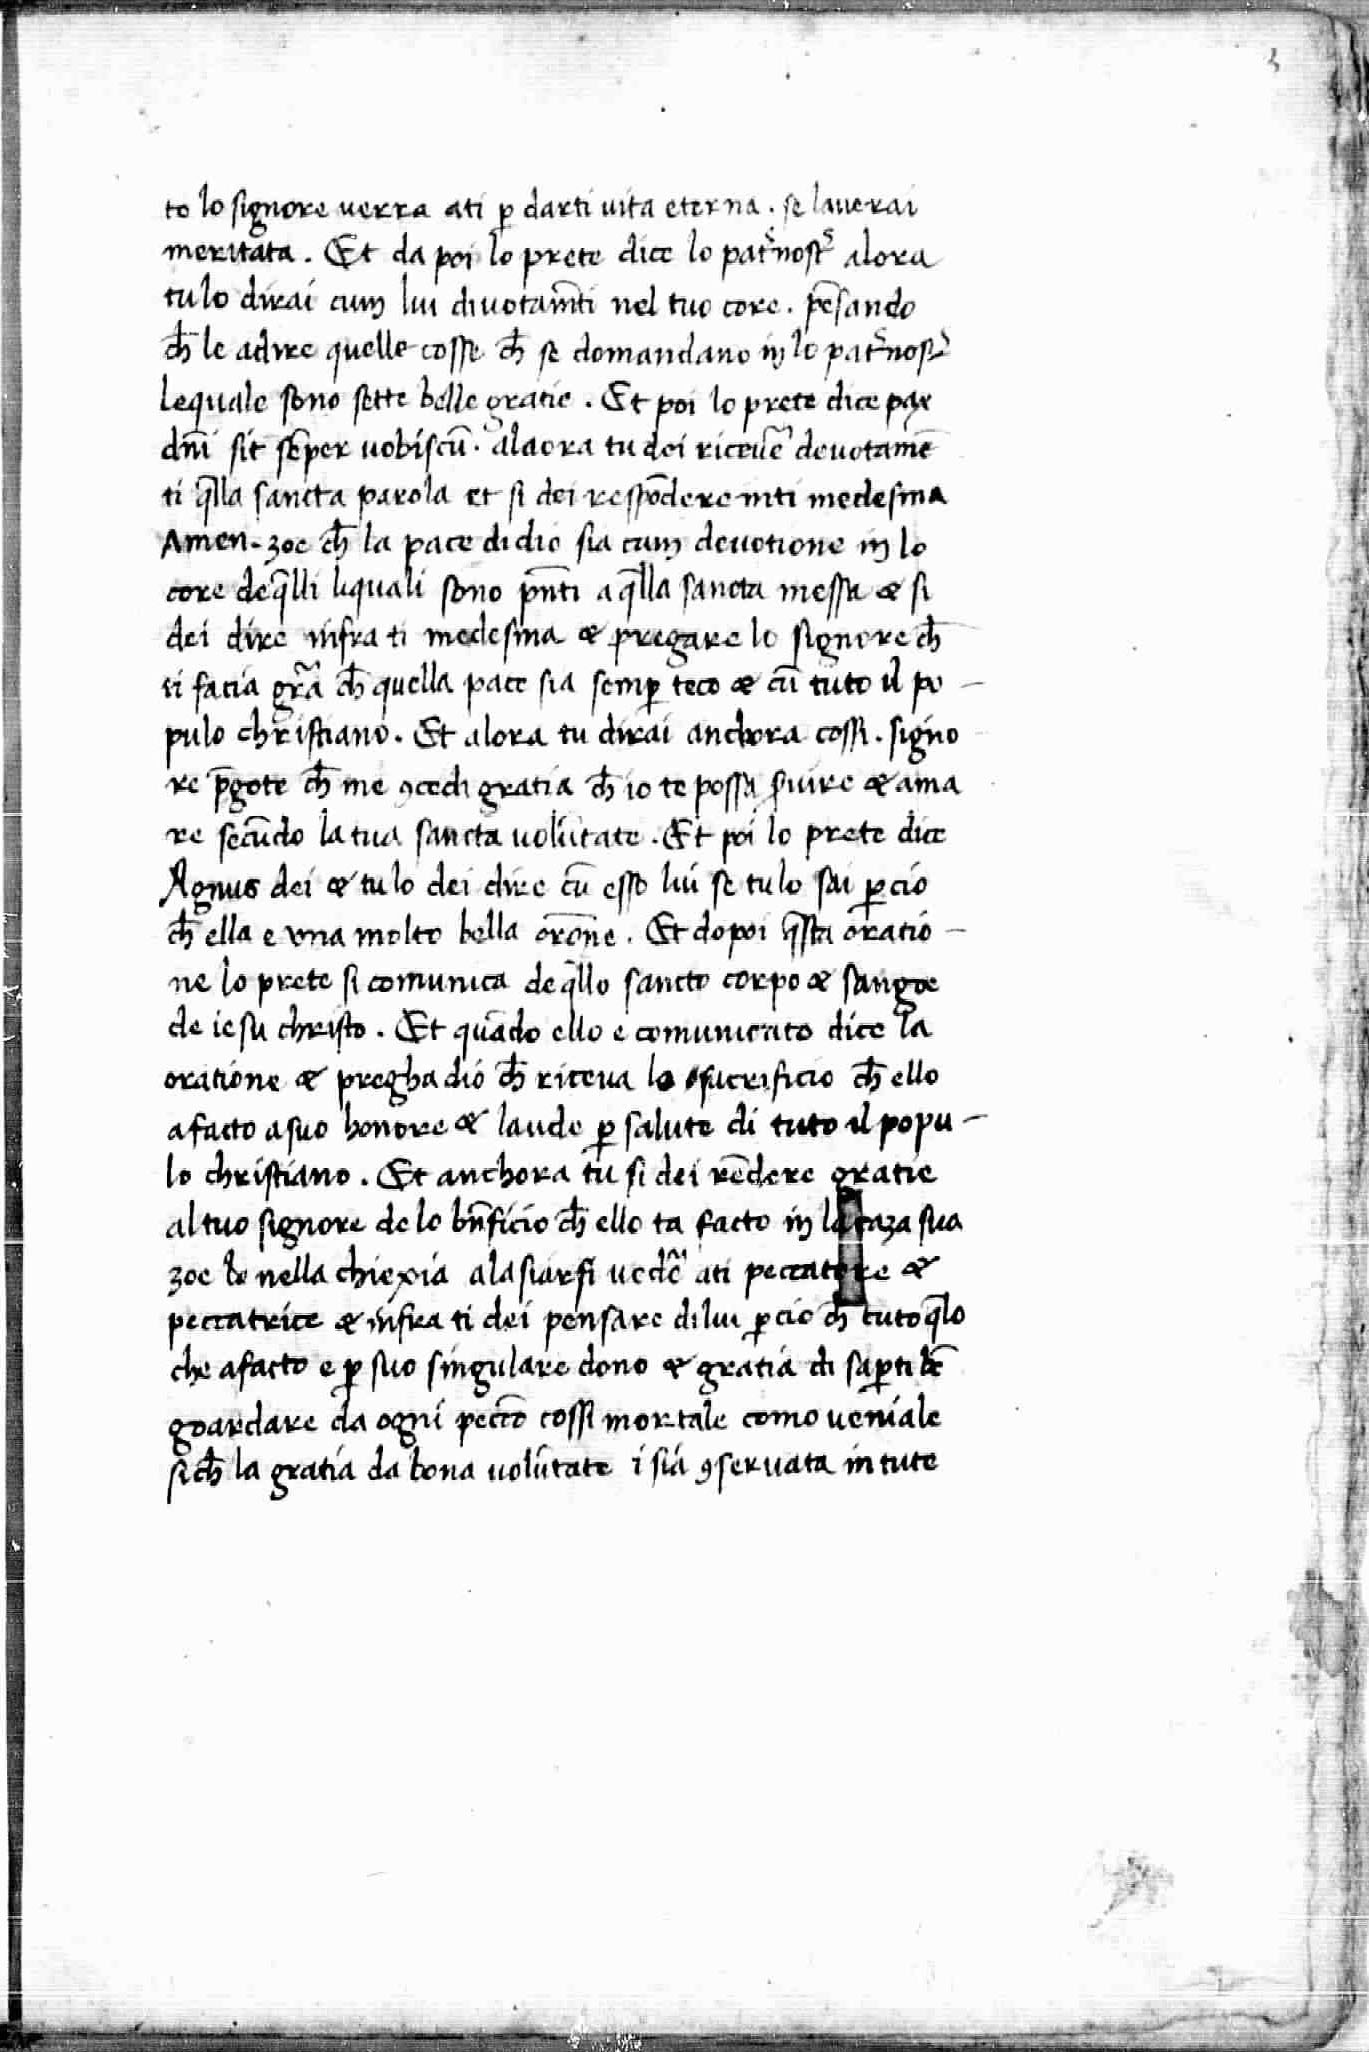 3
to lo signore uerra ati p̲ darti uita eterna . se lauerai
meritata . Et da poi lo prete dice lo pat̃nost̃ alora
tu lo dirai cum lui diuotam̃ti nel tuo core . pẽsando
ch̃ le adire quelle cosse ch̃ se domandano in lo pat̃nost̃
lequale sono sette belle gratie . Et poi lo prete dice pax
dñi sit sẽper uobiscũ . alaora tu dei riceuẽ deuotamẽ
ti q̃lla sancta parola et si dei respõdere inti medesma
Amen . zoe ch̃ la pace di dio sia cum deuotione in lo
core de q̃lli liquali sono p̃nti a q̃lla sancta messa & si
dei dire infra ti medesma & pregare lo signore ch̃
ti facia gr̃a ch̃ quella pace sia semp̲ teco & cũ tuto il po –
pulo christiano . Et alora tu dirai anchora cossi . signo
re p̃gote ch̃ me ꝯcedi gratia ch̃ io te possa s̃uire & ama
re secũdo la tua sancta uolũtate . Et poi lo prete dice
Agnus dei & tu lo dei dire cũ esso lui se tu lo sai p̲cio
ch̃ ella e una molto bella orõne . Et dopoi q̃sta oratio –
ne lo prete si comunica de q̃llo sancto corpo & sangoe
de iesu christo . Et quãdo ello e comunicato dice la
oratione & pregha dio ch̃ riceua lo sacrificio ch̃ ello
a facto a suo honore & laude p̲ salute di tuto il popu –
lo christiano . Et anchora tu si dei rẽdere gratie
al tuo signore de lo bñficio ch̃ ello ta facto in la caza sua
zoe nella chiexia a lasiarsi uedẽ ati peccatore &
peccatrice & infra ti dei pensare di lui p̲cio ch̃ tuto q̃lo
che a facto e p̲ suo singulare dono & gratia di sap̲ti bẽ
goardare da ogni pectõ cossi mortale como ueniale
si ch̃ la gratia da bona uolũtate i sia ꝯseruata in tute